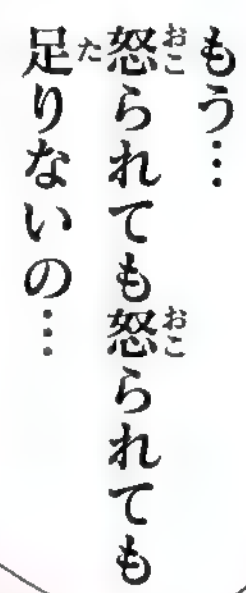 もう…
怒られても怒られても
足りないの…